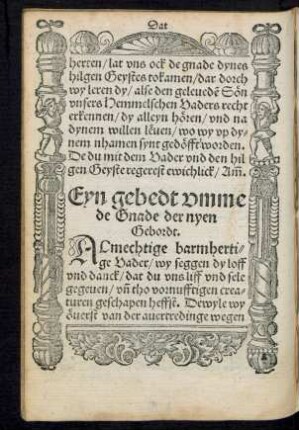 Dat
herren/ lat vns ock de gnade dynes
hilgen Geystes tokamen/ dar dorch
wy leren dy/ alse den geleuedē Sön
vnsers Hemmelschen Vaders recht
erkennen/ dy alleyn hören/ vnd na
dynem willen leuen/ wo wy vp dy-
nem nhamen synt gedöfft worden.
De du mit dem Vader vnd den hil
gen Geyste regerest ewichlick/ Am̄.
Eyn gebedt vmme
de Gnade der nyen
Gebordt.
ALmechtige barmherti-
ge Vader/ wy seggen dy loff
vnd danck/ dat du vns liff vnd sele
gegeuen/ vn̄ tho vornufftigen crea-
turen geschapen heffst. Dewyle wy
öuerst van der auertredinge wegen